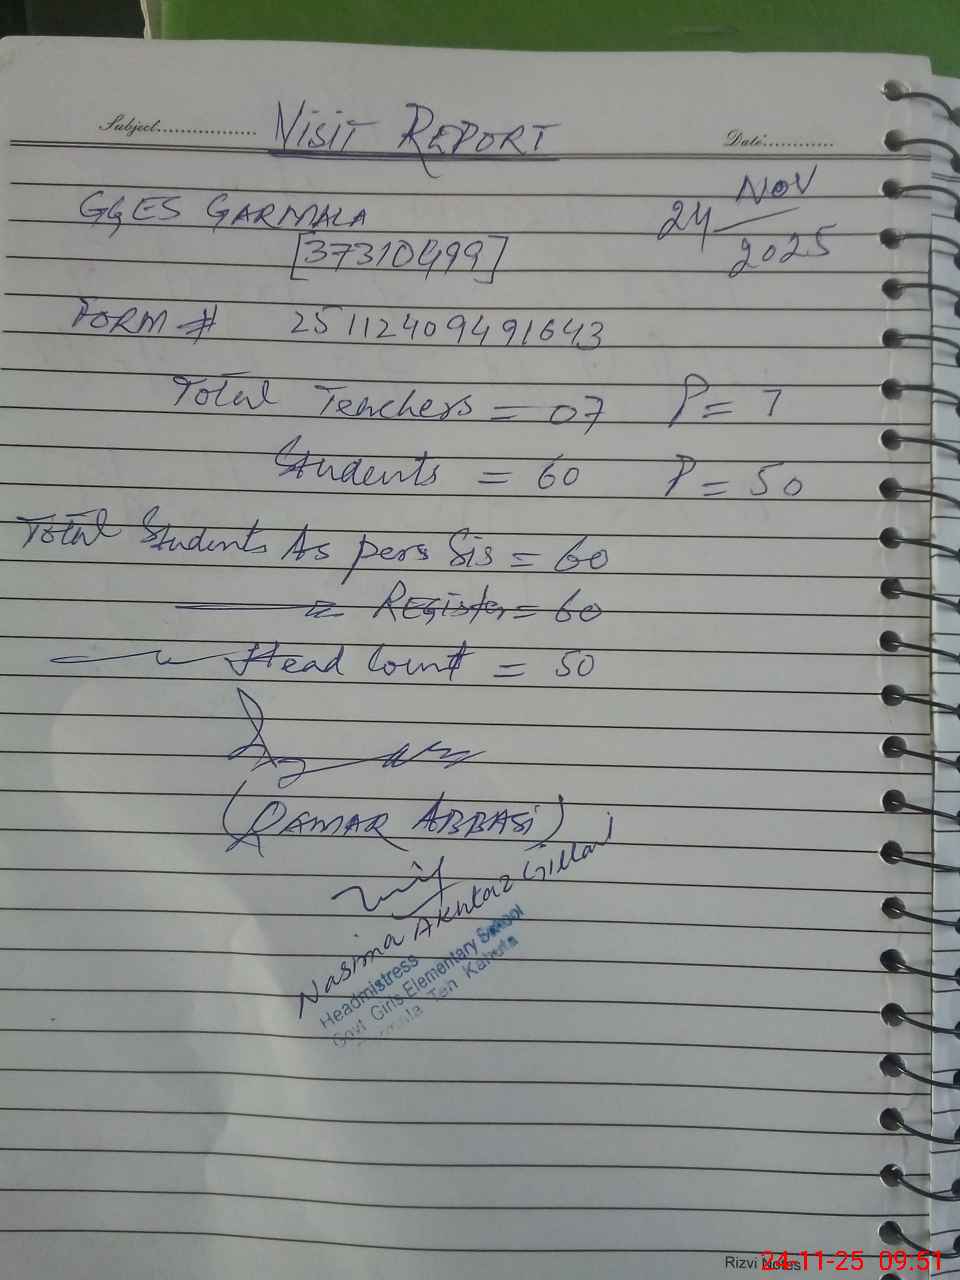 Subject................ VISIT REPORT Date............
GGES GARMALA 24 NOV 2025
[37310499]
FORM # 25112409491643
Total Teachers = 07 P = 7
Students = 60 P = 50
Total Students As pers Sis = 60
Register = 60
Head Count = 50
(QAMAR ABBASI)
Nasima Akhtar
Headmistress
Govt Girls Elementary School
Teh Kahuta
Rizvi Notes
24-11-25 09:51